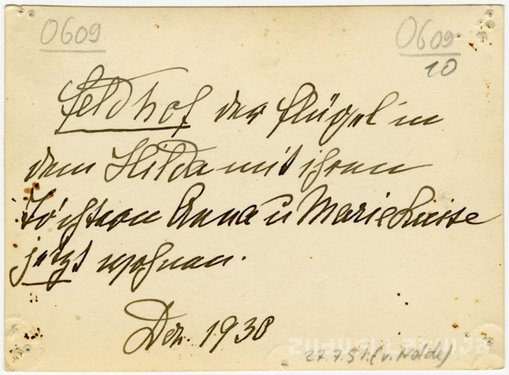 0609
0609
10
Feldhof der Flügel in
dem Hilda mit ihren
Töchtern Anna u Marie Luise
jetzt wohnen.
Dez. 1938
27.7.51. (v. Nolde)